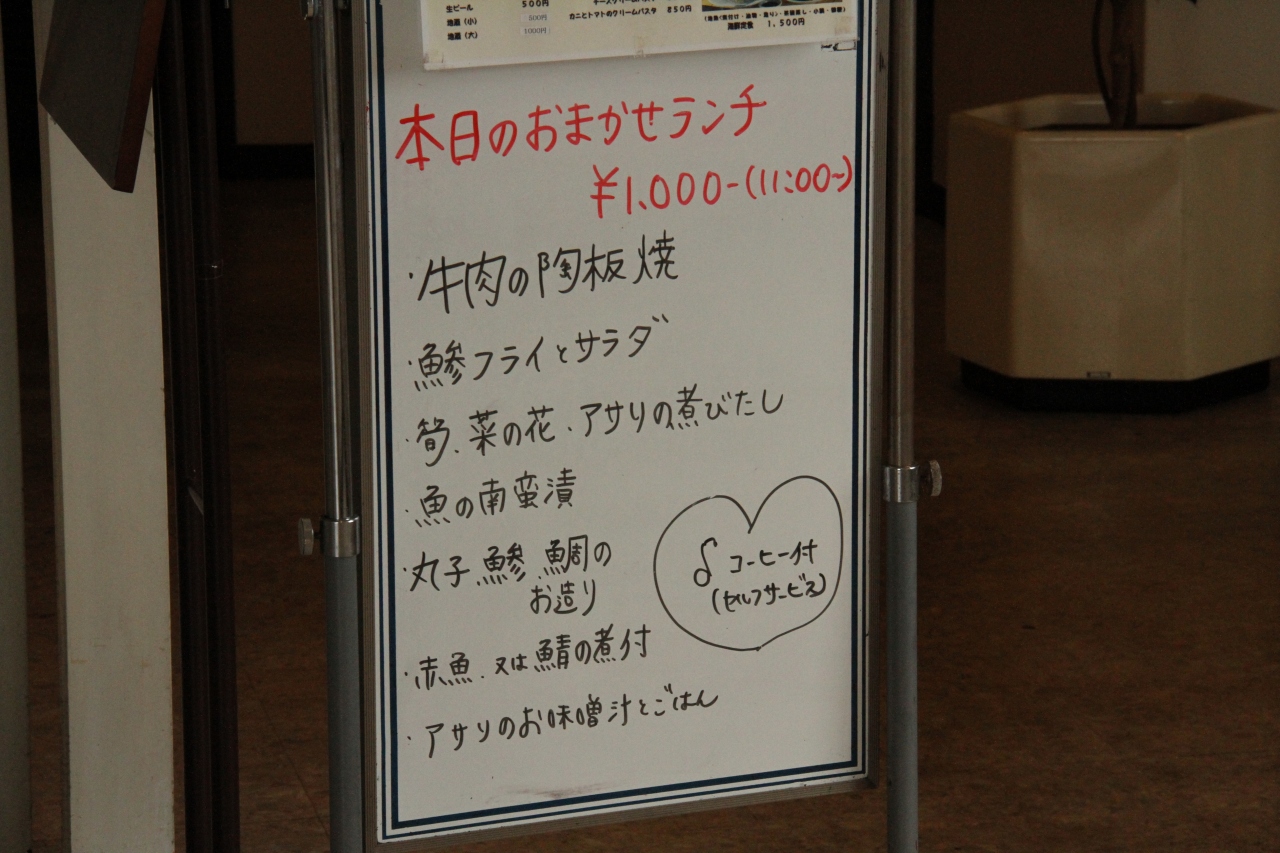 生ビール 500円
地酒(小) 500円
地酒(大) 1000円
カニとトマトのクリームパスタ 850円
海鮮定食 1,500円
本日のおまかせランチ
¥1.000-(11:00~)
・牛肉の陶板焼
・鯵フライとサラダ
・筍、菜の花、アサリの煮びたし
・魚の南蛮漬
・丸子、鯵、鯛の
お造り
・赤魚、又は鯖の煮付
・アサリのお味噌汁とごはん
コーヒー付
(セルフサービス)